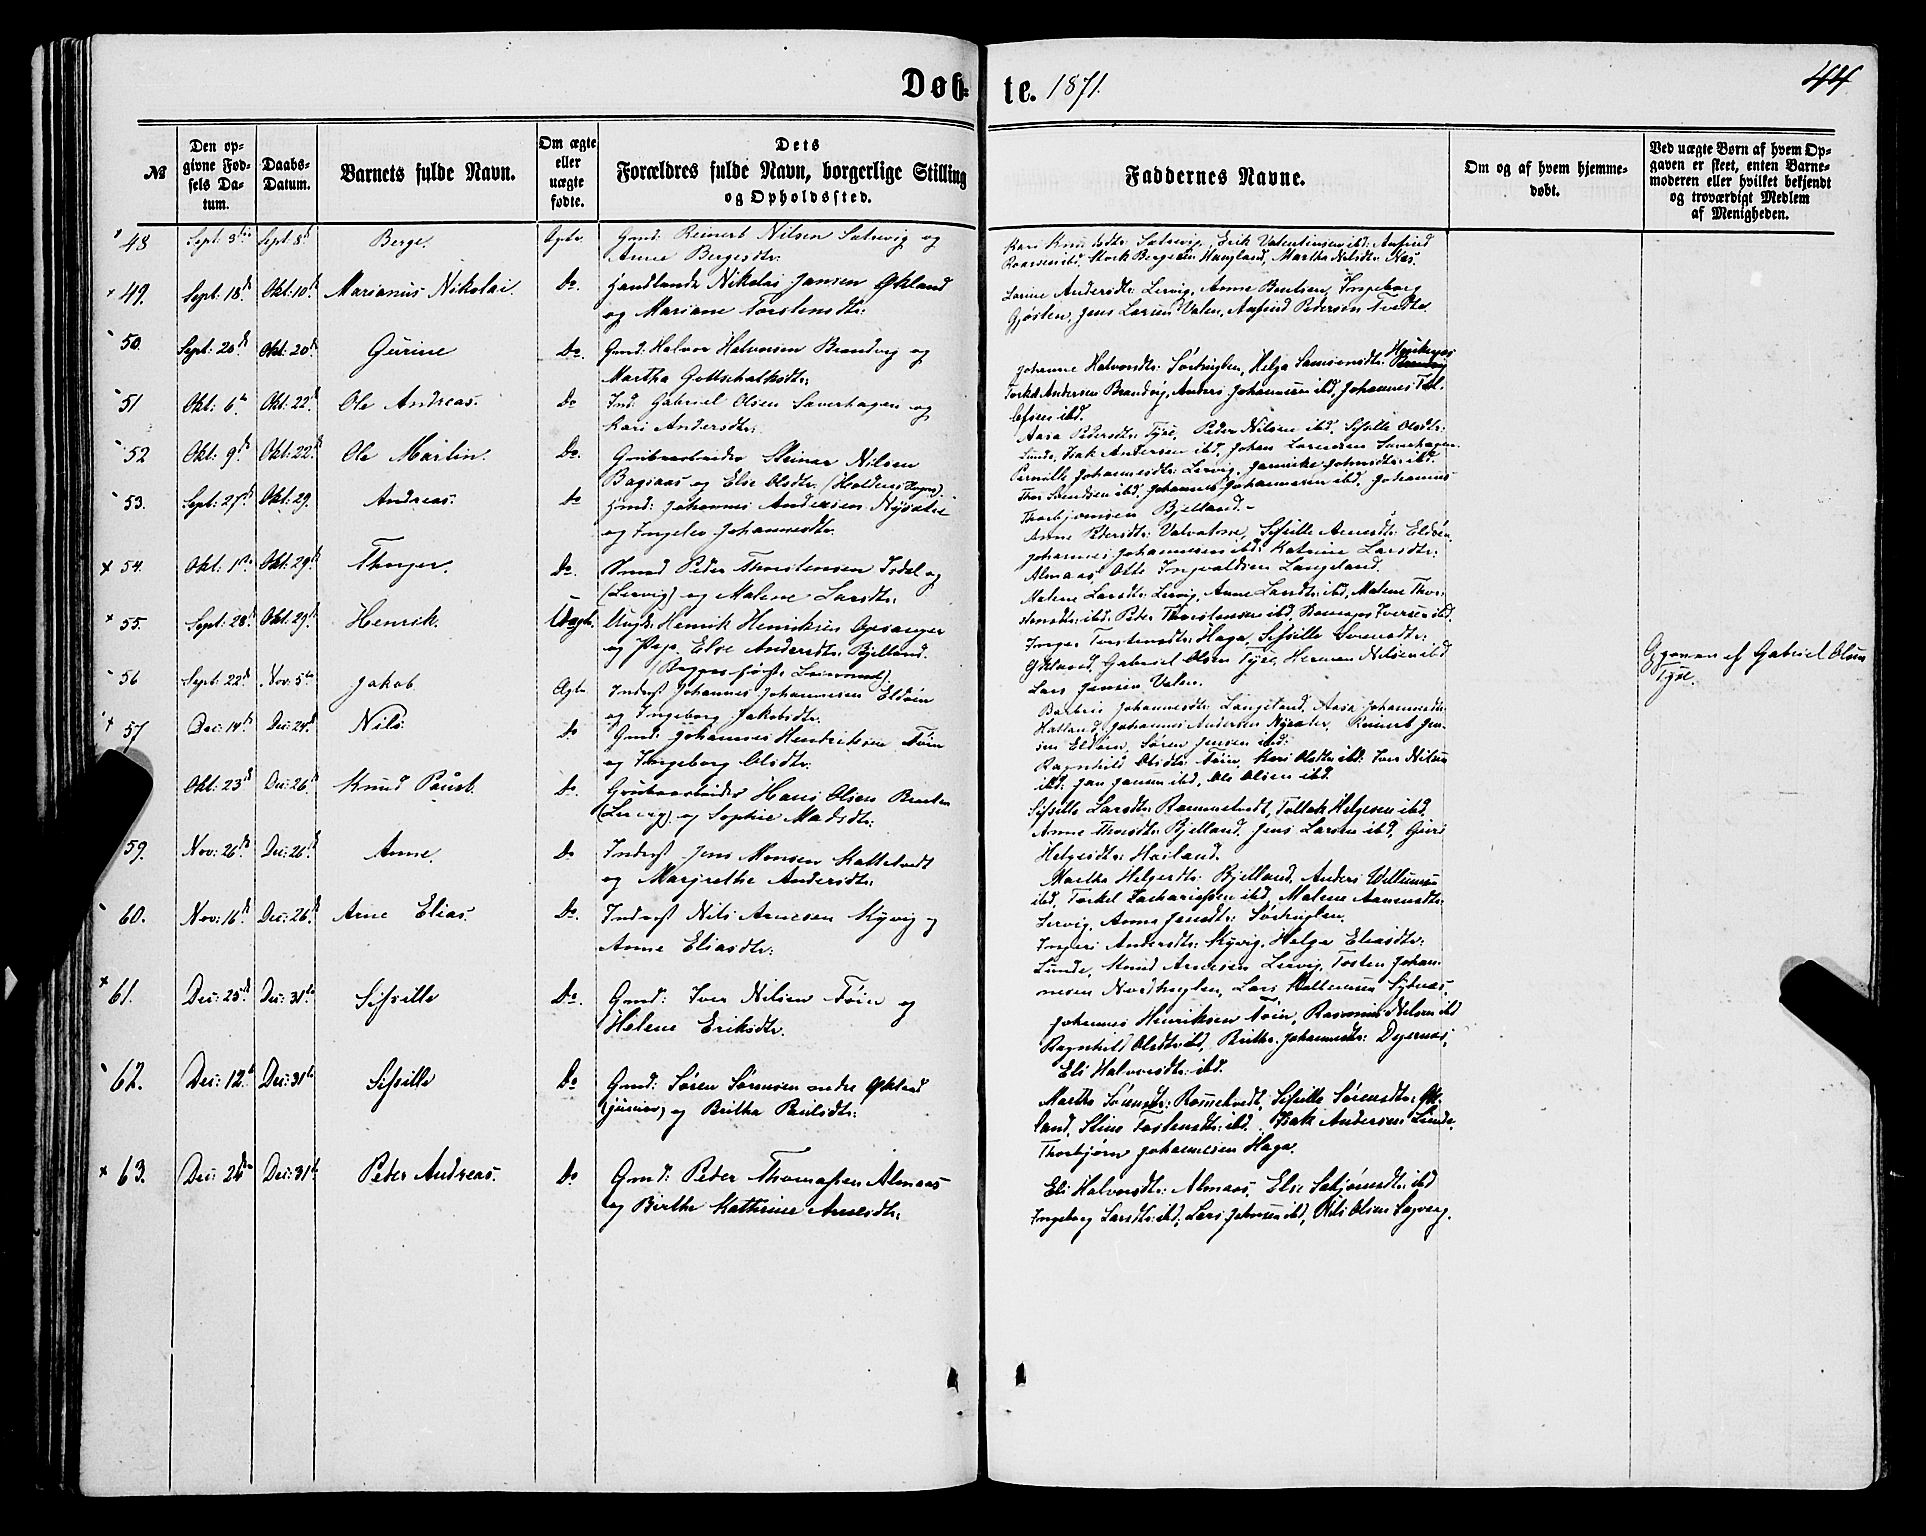 Døb-te. 1871.
44
№
Den op-
givne Fød-
sels Da-
tum.
Daabs-
Datum.
Barnets fulde Navn.
Om ægte
eller
uægte
fødte.
Dets
Forældres fulde Navn, borgerlige Stilling
og Opholdssted.
Faddernes Navne.
Om og af hvem hjemme-
døbt.
Ved uægte Børn af hvem Op-
gaven er skeet, enten Barne-
moderen eller hvilket bekjendt
og troværdigt Medlem
af Menigheden.
48 Sept: 3 Sept: 8 Berge. Ægte Gmd: Reinert Nilsen Sætrevig og
Anne Bergesdtr:
Kari Knudsdtr: Sætrevig, Erik Valentinsen ibd: Anfind
Roarsen ibd, Mork Bergesen Haugland, Martha Nilsdtr: Næs.
49. Sept: 18d Okt: 10d Marianus Nikolai. Do. Handlende Nikolai Jansen Økland
og Mariane Torstensdtr:
Lorine Andersdtr: Lervig, Anne Boutsen, Ingeborg
Gjøsten, Jens Larsen Valen, Anfind Pedersen Tvedte.
50. Sept: 20d Okt: 20d Gurine Do. Gmd: Halvor Halvorsen Brandvig og
Martha Gottschalksdtr:
Johanne Halvorsdtr: Sørhuglen, Helga Samsonsdtr:
Torkel Andersen Brandvig, Anders Johannesen ibd, Johannes Tol-
lefsen ibd.
51 Okt: 6te Okt: 22d Ole Andreas. Do Ind: Gabriel Olsen Saverhagen og
Kari Andersdtr:
Aasa Pedersdtr: Tyse, Peder Nilsen ibd, Sissille Olsdtr:
Lunde, Isak Andersen ibd, Johan Larensen Saverhagen.
52 Okt: 9d Okt: 22d Ole Martin. Do. Grubearbeider Steinar Nilsen
Bagsaas og Else Olsdtr. (Holdens Sogn).
Pernille Johannesdtr: Lervig, Jannike Johnsdtr: ibd.
Thor Svendsen ibd, Johannes Johannesen ibd, Johannes
Thorbjørnsen Bjelland.
53. Sept: 27d Okt: 29. Andreas. Do Gmd: Johannes Andersen Nysæter
og Ingelev Johannesdtr.
Anne Pedersdtr: Valvatne, Sissille Arnesdtr: Eldøen,
Johannes Johannesen ibd: Katrine Larsdtr:
Almaas Otto Ingvaldsen Langeland.
54. Okt: 1ste Okt: 29d Thorger. Do. Smed Peder Thorstensen Isdal og
(Lervig) og Malene Larsdtr:
Malene Larsdtr: Lervig, Anne Larsdtr: ibd, Malene Thor-
stensdtr: ibd: Peder Thorstensen ibd, Iversen ibd.
55. Sept: 28d Okt: 29d Henrik. Uægte. Ungk: Henrik Henriksen Opsanger
og Pige Else Andersdtr: Bjelland.
Inger Torstensdtr: Haga, Sissille Svensdtr:
Økland, Gabriel Olsen Tyse, Herman Nilsen ibd
Lars Jansen Valen.
Opgaven af Gabriel Olsen
Tyse.
56 Sept: 22d Nov: 5te Jakob Ægte Inderst Johannes Johannesen Eldøen
og Ingeborg Jakobsdtr:
Barbrü Johannesdtr: Langeland, Aasa Johannesdtr:
Hatland, Johannes Andersen Nysæter, Reinert Jen-
sen Eldøen, Søren Jensen ibd:
57 Dec: 14d Dec: 24d Nils Do Gmd: Johannes Hendriksen Tøien
og Ingeborg Olsdtr:
Ragnhild Olsdtr: Tøien, Kari Olsdtr: ibd: Iver Nilsen
ibd: Jan Jansen ibd, Ole Olsen ibd.
Okt: 23d Dec: 26d Knud Do. Grubearbeider Hans Olsen
(Lervig) og Sophie Madsdtr:
Sissille Larsdtr: Rommetvedt, Tollak Helgesen ibd,
Anne Thoresdtr: Bjelland, Jens Larsen ibd, Guri
Helgesdtr: Hailand.
59. Nov: 26d Dec: 26d Anne. Do Inderst Jens Monsen Kattetvedt
og Margrethe Andersdtr:
Martha Helgesdtr: Bjelland, Anders Willumsen
ibd, Torkel Zachariassen ibd, Malene Aanensdtr:
Lervig, Anna Jansdtr: Sørhuglen.
60. Nov: 16d Dec: 26d Arne Elias. Do. Inderst Nils Arnesen Kyvig og
Anne Eliasdtr:
Ingeri Andersdtr: Kyvig, Helga Eliasdtr:
Lunde, Knud Arnesen Lervig, Tosten Johan-
nesen Nordhuglen, Lars
61. Dec: 25d Dec: 31te Sissille Do. Gmd: Iver Nilsen Tøien og
Helene Eriksdtr.
Johannes Henriksen Tøien, Rasmus Nilsen ibd
Ragnhild Olsdtr: ibd, Brithe Johannesdtr: Dyernæs,
Eli Halvorsdtr: ibd.
62. Dec: 12te Dec: 31te Sissille Do Gmd: Søren Sørensen nedre Økland
(junior) og Britha Poulsdtr:
Martha Sørensdtr: Rommetvedt, Sissille Sørensdtr: Øk-
land, Stine Tostensdtr: ibd. Isak Andersen Lunde,
Thorbjørn Johannesen Haga.
63. Dec: 26de Dec: 31te Peder Andreas. Do Gmd: Peder Thomassen Almaas
og Berthe Kathrine Arnesdtr:
Eli Halvorsdtr: Almaas, Else ibd
Ingeborg Larsdtr: ibd, Lars Johnsen ibd, Nils Olsen Sagvaag.